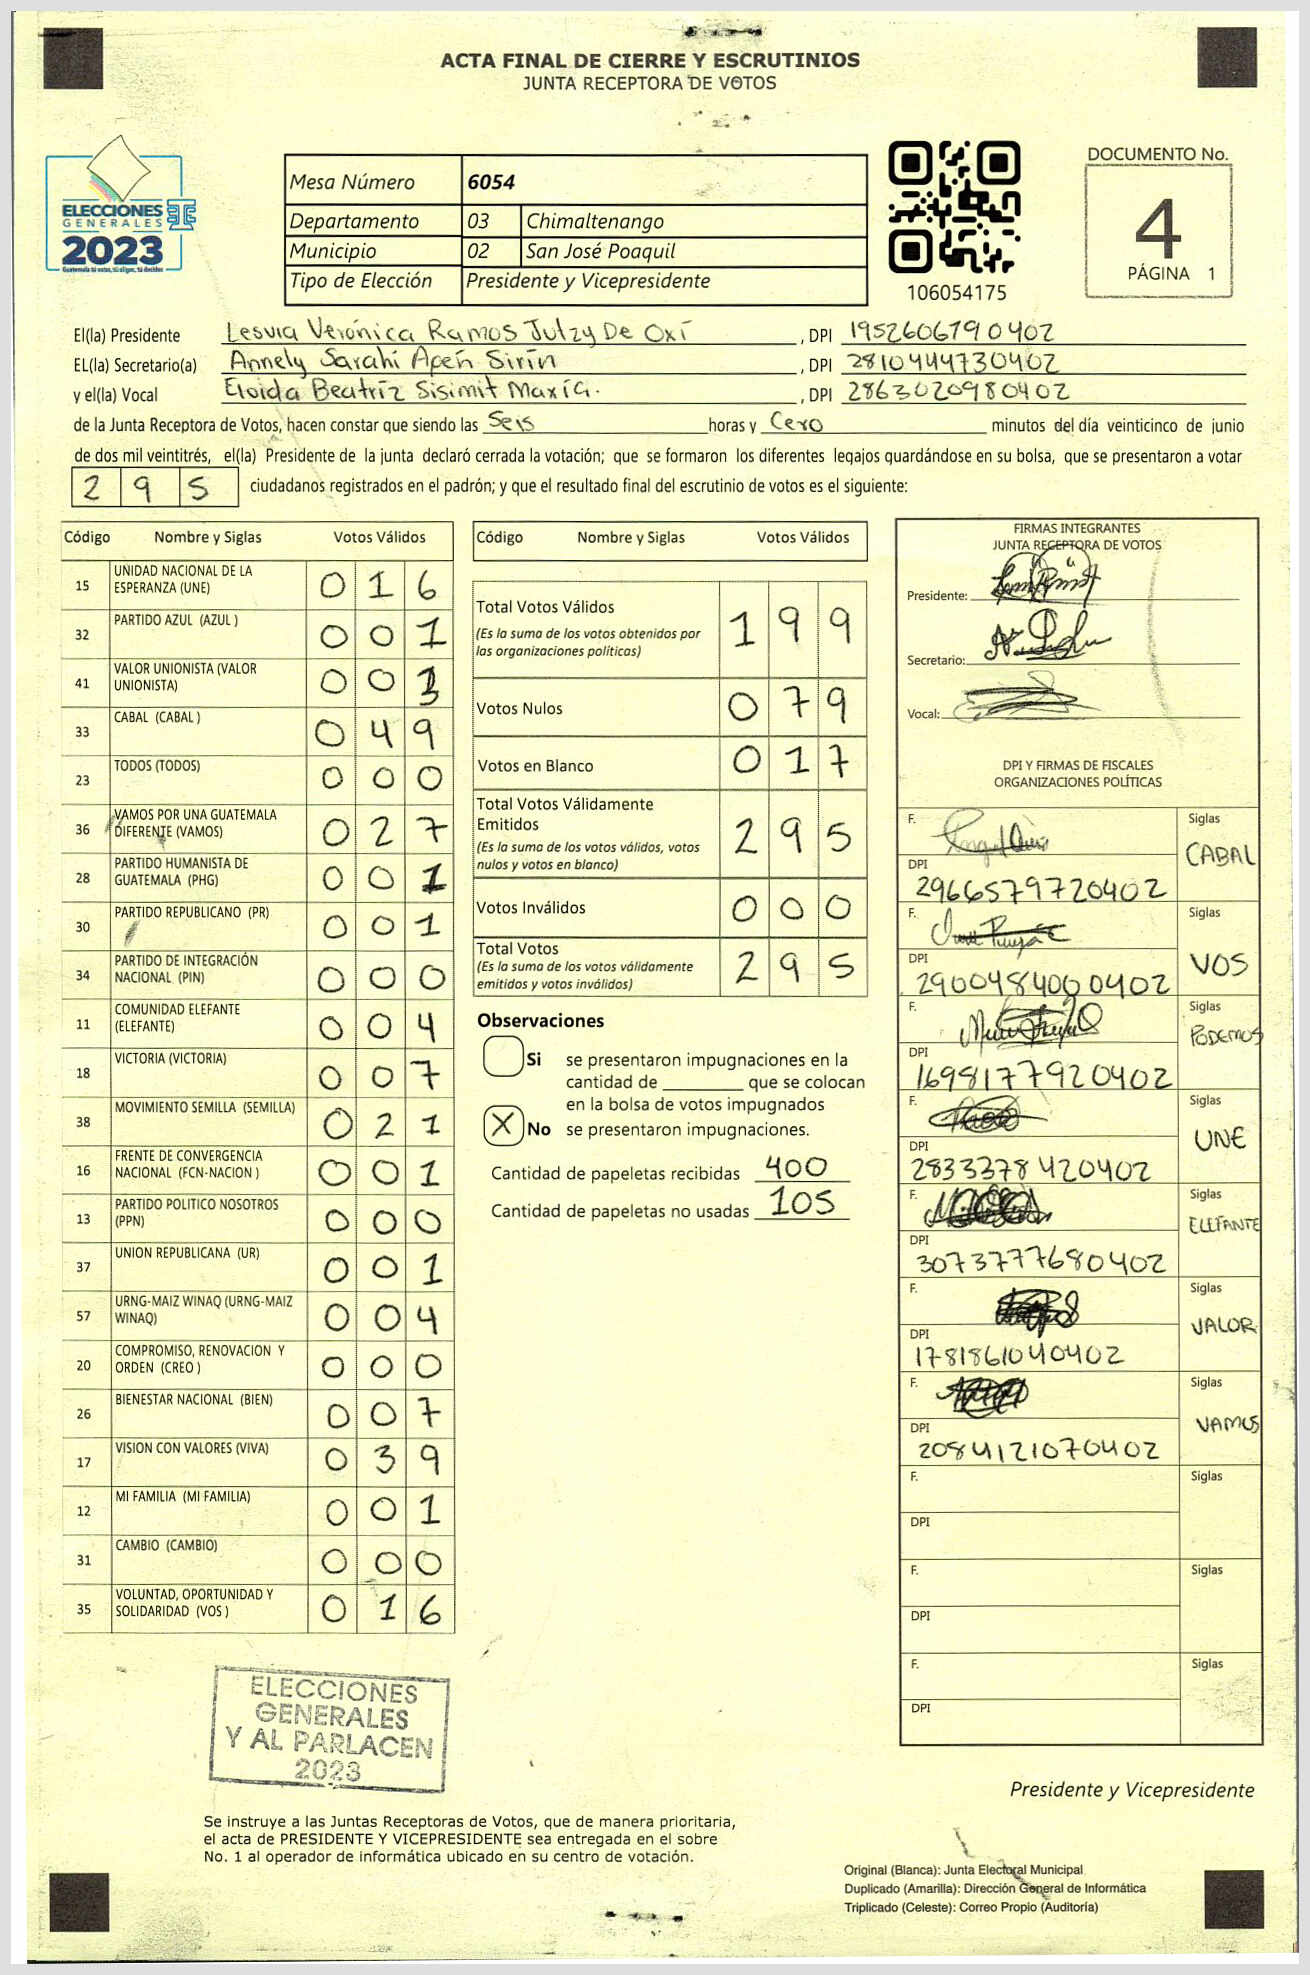 ACTA FINAL DE CIERRE Y ESCRUTINIOS
JUNTA RECEPTORA DE VOTOS
ELECCIONES
GENERALES
2023
Guatemala tú votas, tú eliges, tú decides
Mesa Número 6054
Departamento 03 Chimaltenango
Municipio 02 San José Poaquil
Tipo de Elección Presidente y Vicepresidente
106054175
DOCUMENTO No.
4
PÁGINA 1
El(la) Presidente Lesvia Verónica Ramos Jutzy De Oxí, DPI 1952606790402
EL(la) Secretario(a) Annely Sarahi Apén Sirín, DPI 2810444730402
y el(la) Vocal Eloida Beatríz Sisimit Maxía., DPI 2863020980402
de la Junta Receptora de Votos, hacen constar que siendo las Seis horas y Cero minutos del día veinticinco de junio
de dos mil veintitrés, el(la) Presidente de la junta declaró cerrada la votación; que se formaron los diferentes legajos guardándose en su bolsa, que se presentaron a votar
295 ciudadanos registrados en el padrón; y que el resultado final del escrutinio de votos es el siguiente:
Código Nombre y Siglas Votos Válidos
15 UNIDAD NACIONAL DE LA ESPERANZA (UNE) 016
32 PARTIDO AZUL (AZUL ) 001
41 VALOR UNIONISTA (VALOR UNIONISTA) 003
33 CABAL (CABAL ) 049
23 TODOS (TODOS) 000
36 VAMOS POR UNA GUATEMALA DIFERENTE (VAMOS) 027
28 PARTIDO HUMANISTA DE GUATEMALA (PHG) 001
30 PARTIDO REPUBLICANO (PR) 001
34 PARTIDO DE INTEGRACIÓN NACIONAL (PIN) 000
11 COMUNIDAD ELEFANTE (ELEFANTE) 004
18 VICTORIA (VICTORIA) 007
38 MOVIMIENTO SEMILLA (SEMILLA) 021
16 FRENTE DE CONVERGENCIA NACIONAL (FCN-NACION ) 001
13 PARTIDO POLITICO NOSOTROS (PPN) 000
37 UNION REPUBLICANA (UR) 001
57 URNG-MAIZ WINAQ (URNG-MAIZ WINAQ) 004
20 COMPROMISO, RENOVACION Y ORDEN (CREO ) 000
26 BIENESTAR NACIONAL (BIEN) 007
17 VISION CON VALORES (VIVA) 039
12 MI FAMILIA (MI FAMILIA) 001
31 CAMBIO (CAMBIO) 000
35 VOLUNTAD, OPORTUNIDAD Y SOLIDARIDAD (VOS ) 016
Código Nombre y Siglas Votos Válidos
Total Votos Válidos 199
(Es la suma de los votos obtenidos por
las organizaciones políticas)
Votos Nulos 079
Votos en Blanco 017
Total Votos Válidamente
Emitidos 295
(Es la suma de los votos válidos, votos
nulos y votos en blanco)
Votos Inválidos 000
Total Votos 295
(Es la suma de los votos válidamente
emitidos y votos inválidos)
Observaciones
Si se presentaron impugnaciones en la
cantidad de ________ que se colocan
en la bolsa de votos impugnados
X No se presentaron impugnaciones.
Cantidad de papeletas recibidas 400
Cantidad de papeletas no usadas 105
FIRMAS INTEGRANTES
JUNTA RECEPTORA DE VOTOS
Presidente:
Secretario:
Vocal:
DPI Y FIRMAS DE FISCALES
ORGANIZACIONES POLÍTICAS
F. Siglas CABAL
DPI 2966579720402
F. Siglas VOS
DPI 2900484000402
F. Siglas PODEMOS
DPI 1698177920402
F. Siglas UNE
DPI 2833378420402
F. Siglas ELEFANTE
DPI 3073777680402
F. Siglas VALOR
DPI 1781861040402
F. Siglas VAMOS
DPI 2084121070402
F. Siglas
DPI
F. Siglas
DPI
F. Siglas
DPI
ELECCIONES
GENERALES
Y AL PARLACEN
2023
Presidente y Vicepresidente
Se instruye a las Juntas Receptoras de Votos, que de manera prioritaria,
el acta de PRESIDENTE Y VICEPRESIDENTE sea entregada en el sobre
No. 1 al operador de informática ubicado en su centro de votación.
Original (Blanca): Junta Electoral Municipal
Duplicado (Amarilla): Dirección General de Informática
Triplicado (Celeste): Correo Propio (Auditoría)